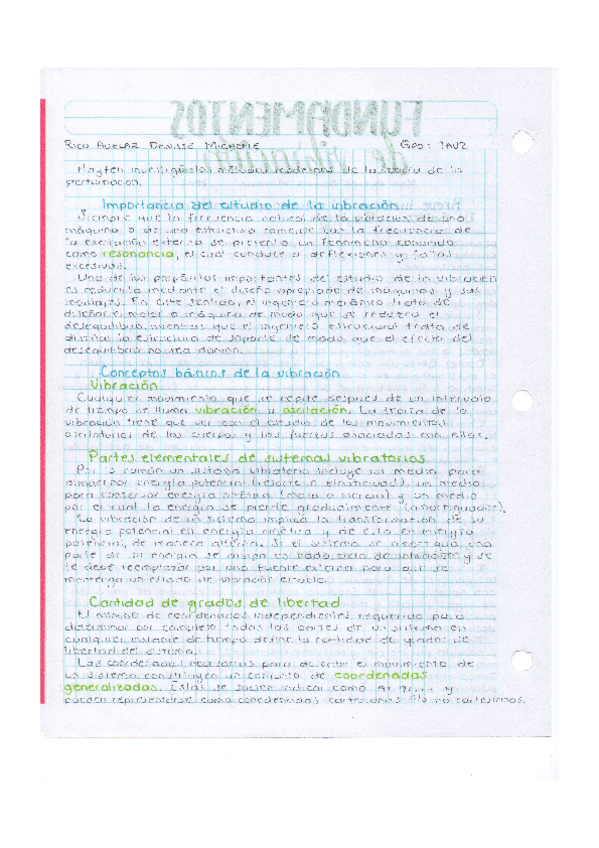 Rico Denisse Michelle Gpo: 7AV2
Nayfeh los métodos modernos de la teoría de la
perturbación.
Importancia del estudio de la vibración
Siempre que la frecuencia natural de la vibración de una
máquina o de una estructura coincide con la frecuencia de
la excitación externa se presenta un fenómeno conocido
como resonancia, el cual conduce a deflexiones y fallas
excesivas.
Uno de los propósitos importantes del estudio de la vibración
es reducirla mediante el diseño apropiado de máquinas y sus
montajes. En este sentido, el ingeniero mecánico trata de
diseñar el motor o máquina de modo que se reduzca el
desequilibrio, mientras que el ingeniero estructural trata de
diseñar la estructura de soporte de modo que el efecto del
desequilibrio no sea dañino.
Conceptos básicos de la vibración
Vibración
Cualquier movimiento que se repite después de un intervalo
de tiempo se llama vibración u oscilación. La teoría de la
vibración tiene que ver con el estudio de los movimientos
oscilatorios de los cuerpos y las fuerzas asociadas con ellos.
Partes elementales de sistemas vibratorios
Por lo común un sistema vibratorio incluye un medio para
almacenar energía potencial (resorte o elasticidad), un medio
para conservar energía cinética (masa o inercia) y un medio
por el cual la energía se pierde gradualmente (amortiguador).
La vibración de un sistema implica la transformación de su
energía potencial en energía cinética y de ésta en energía
potencial, de manera alterna. Si el sistema se amortigua, una
parte de su energía se disipa en cada ciclo de vibración y se
le debe reemplazar por una fuente externa para que se
mantenga un estado de vibración estable.
Cantidad de grados de libertad
El mínimo de coordenadas independientes requerido para
determinar por completo todas las partes de un sistema en
cualquier instante de tiempo define la cantidad de grados de
libertad del sistema.
Las coordenadas necesarias para describir el movimiento de
un sistema constituyen un conjunto de coordenadas
generalizadas. Éstas se suelen indicar como y
pueden representarse como coordenadas cartesianas y/o no cartesianas.